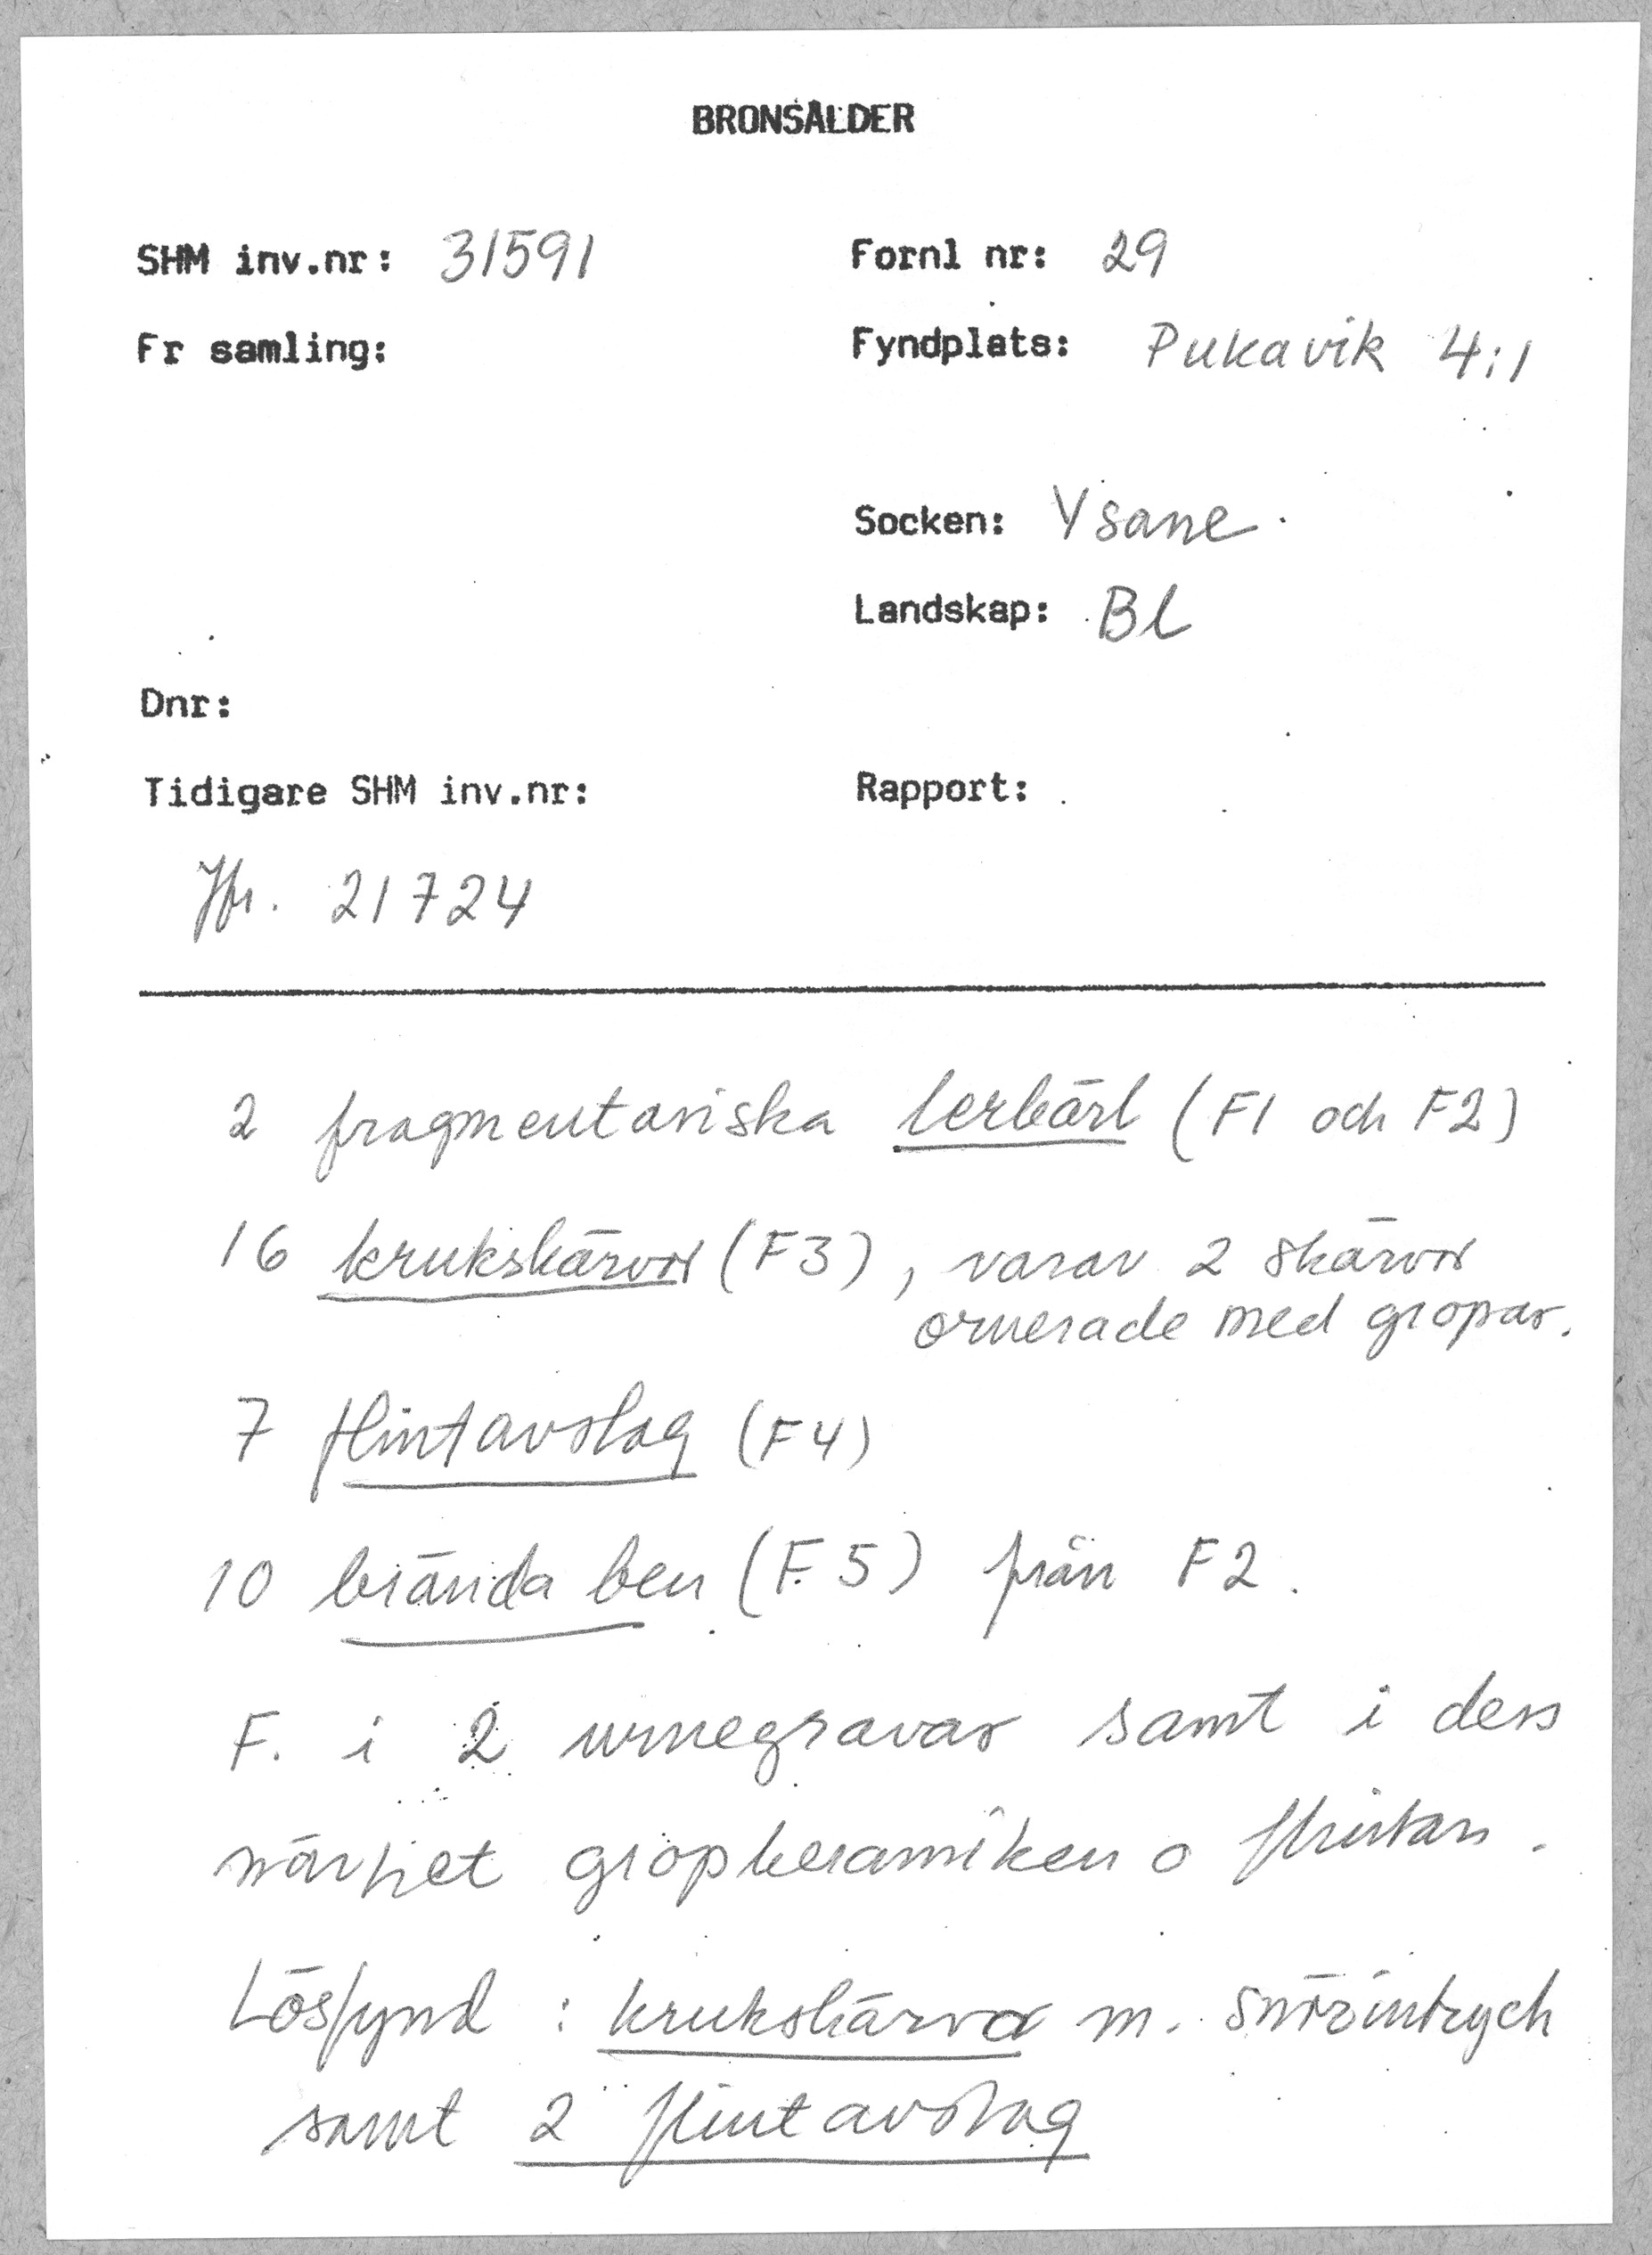 BRONSÅLDER
SHM inv.nr: 31591
Fornl nr: 29
Fr samling:
Fyndplats: Pukavik 4:1
Socken: Ysane
Landskap: Bl
Dnr:
Tidigare SHM inv.nr:
Rapport:
Jfr. 21724
2 fragmentariska lerkärl (F1 och F2)
16 krukskärvor (F3), varav 2 skärvor
ornerade med gropar.
7 flintavslag (F4)
10 brända ben (F.5) från F2.
F. i 2 urnegravar samt i dess
närhet gropkeramiken o flintan.
Lösfynd : krukskärva m. snörintryck
samt 2 flintavslag